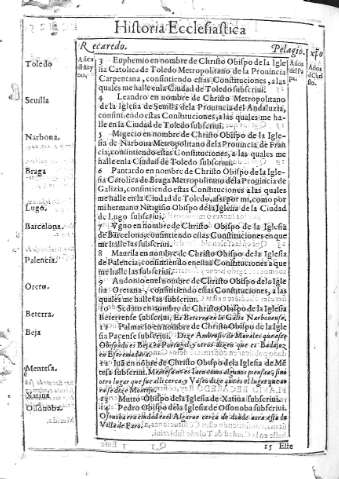 Historia Ecclesiastica
Recaredo.
Pelagio.
Toledo
3 Euphemio en nombre de Christo Obispo de la Igle
sia Catolica de Toledo Metropolitano de la Prouincia
Carpentana, consintiendo estas Constituciones, a las
quales me halle en la Ciudad de Toledo subscriui.
Seuilla
4 Leandro en nombre de Christo Metropolitano
de la Iglesia de Seuilla de la Prouincia del Andaluzia,
consintiendo estas Constituciones, a las quales me ha-
lle en la Ciudad de Toledo subscriui.
Narbona.
5 Migecio en nombre de Christo Obispo de la Igle-
sia de Narbona Metropolitano de la Prouincia de Fran
cia, consintiendo estas Constituciones, a las quales me
halle en la Ciudad de Toledo subscriui.
Braga
6 Pantardo en nombre de Christo Obispo de la Igle-
sia Catolica de Braga Metropolitano de la Prouincia de
Galizia, consintiendo estas Constituciones a las quales
me halle en la Ciudad de Toledo, assi por mi, como por
Lugo.
mi hermano Nitigisio Obispo de la Iglesia de la Ciudad
de Lugo subscriui.
Barcelona.
7 Vgno en nombre de Christo Obispo de la Iglesia
de Barcelona, consintiendo estas Constituciones en que
me halle las subscriui.
Palencia.
8 Maurila en nombre de Christo Obispo de la Iglesia
de Palencia, consintiendo en estas Constituciones a que
me halle las subscriui.
Oreto.
9 Andonio en el nombre de Christo Obispo de la Iglesia
Oretana, consintiendo estas Constituciones, a las
quales me halle las subscriui.
Beterra.
10 Sedato en nombre de Christo Obispo de la Iglesia
Beterrense subscriui. Es Beterra en la Galia Narbonense.
Beja
11 Palmerio en nombre de Christo Obispo de la Igle-
sia Pacense subscriui. Dize Ambrosio de Morales que este
Obispado es Beja en Portugal, y otros dizen que es Badajoz
en Estremadura.
Mentesa.
12 Iuā en nombre de Christo Obispo de la Iglesia de Mē
tesa subscriui.
Xatiua
13 Mutto Obispo de la Iglesia de Xatiua subscriui.
Ossonoba.
14 Pedro Obispo de la Iglesia de Ossonoba subscriui.
15 Este